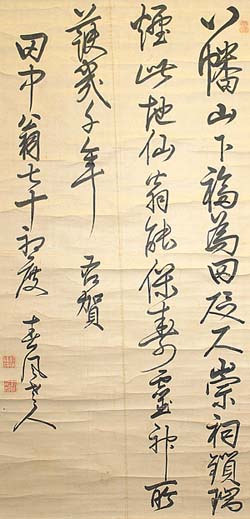 八幡山下福為田咫尺崇祠鎖瑞
煙此地仙翁能保寿靈神所
護幾千年 右賀
田中翁七十初度 春風老人